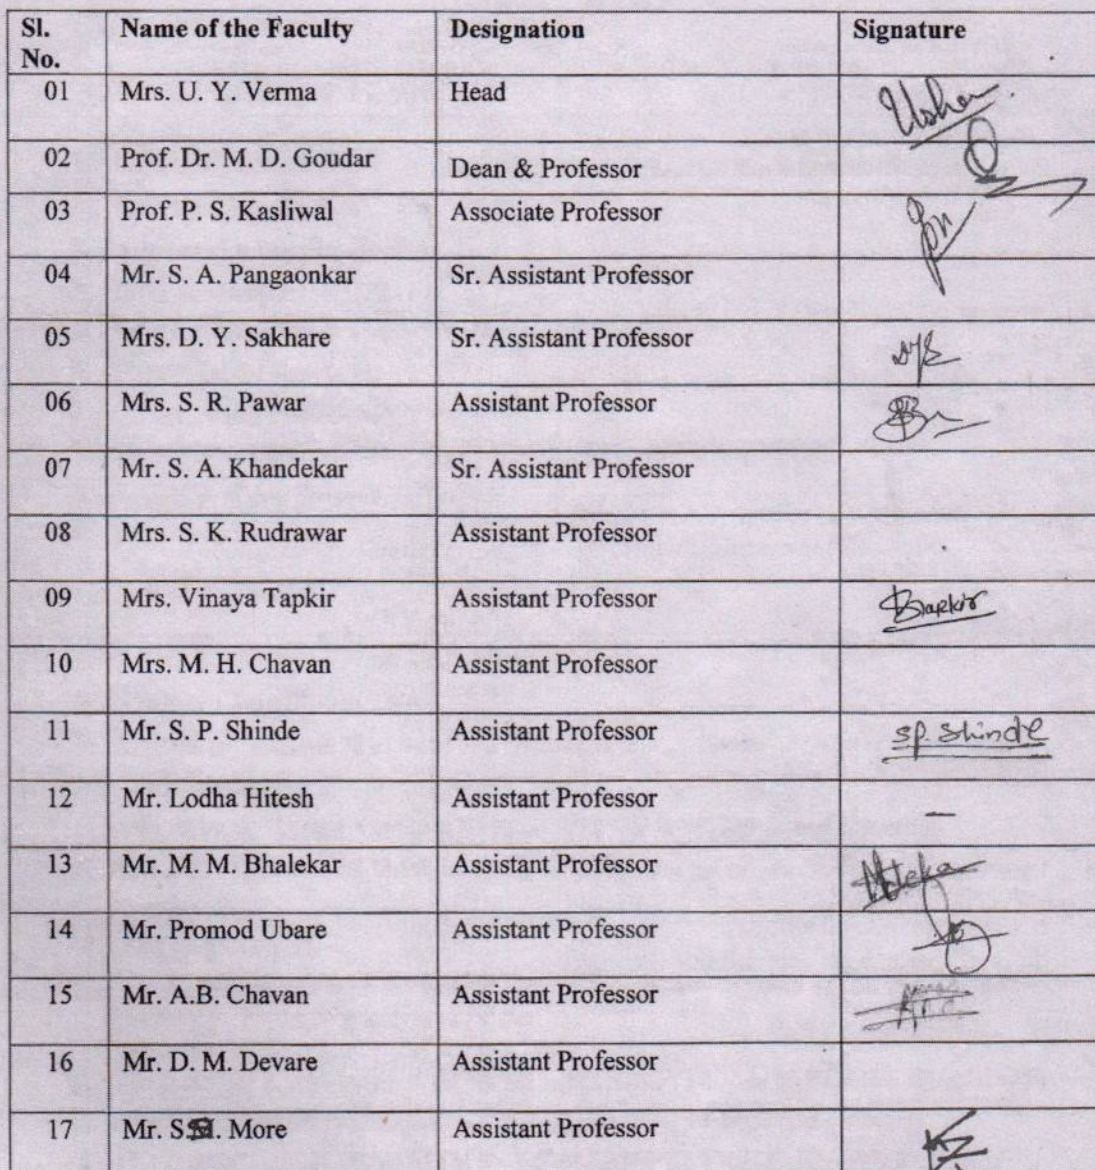 Sl. No. Name of the Faculty Designation Signature
01 Mrs. U. Y. Verma Head Usha
02 Prof. Dr. M. D. Goudar Dean & Professor
03 Prof. P. S. Kasliwal Associate Professor
04 Mr. S. A. Pangaonkar Sr. Assistant Professor
05 Mrs. D. Y. Sakhare Sr. Assistant Professor
06 Mrs. S. R. Pawar Assistant Professor
07 Mr. S. A. Khandekar Sr. Assistant Professor
08 Mrs. S. K. Rudrawar Assistant Professor
09 Mrs. Vinaya Tapkir Assistant Professor
10 Mrs. M. H. Chavan Assistant Professor
11 Mr. S. P. Shinde Assistant Professor SP. Shinde
12 Mr. Lodha Hitesh Assistant Professor –
13 Mr. M. M. Bhalekar Assistant Professor
14 Mr. Promod Ubare Assistant Professor
15 Mr. A.B. Chavan Assistant Professor
16 Mr. D. M. Devare Assistant Professor
17 Mr. More Assistant Professor